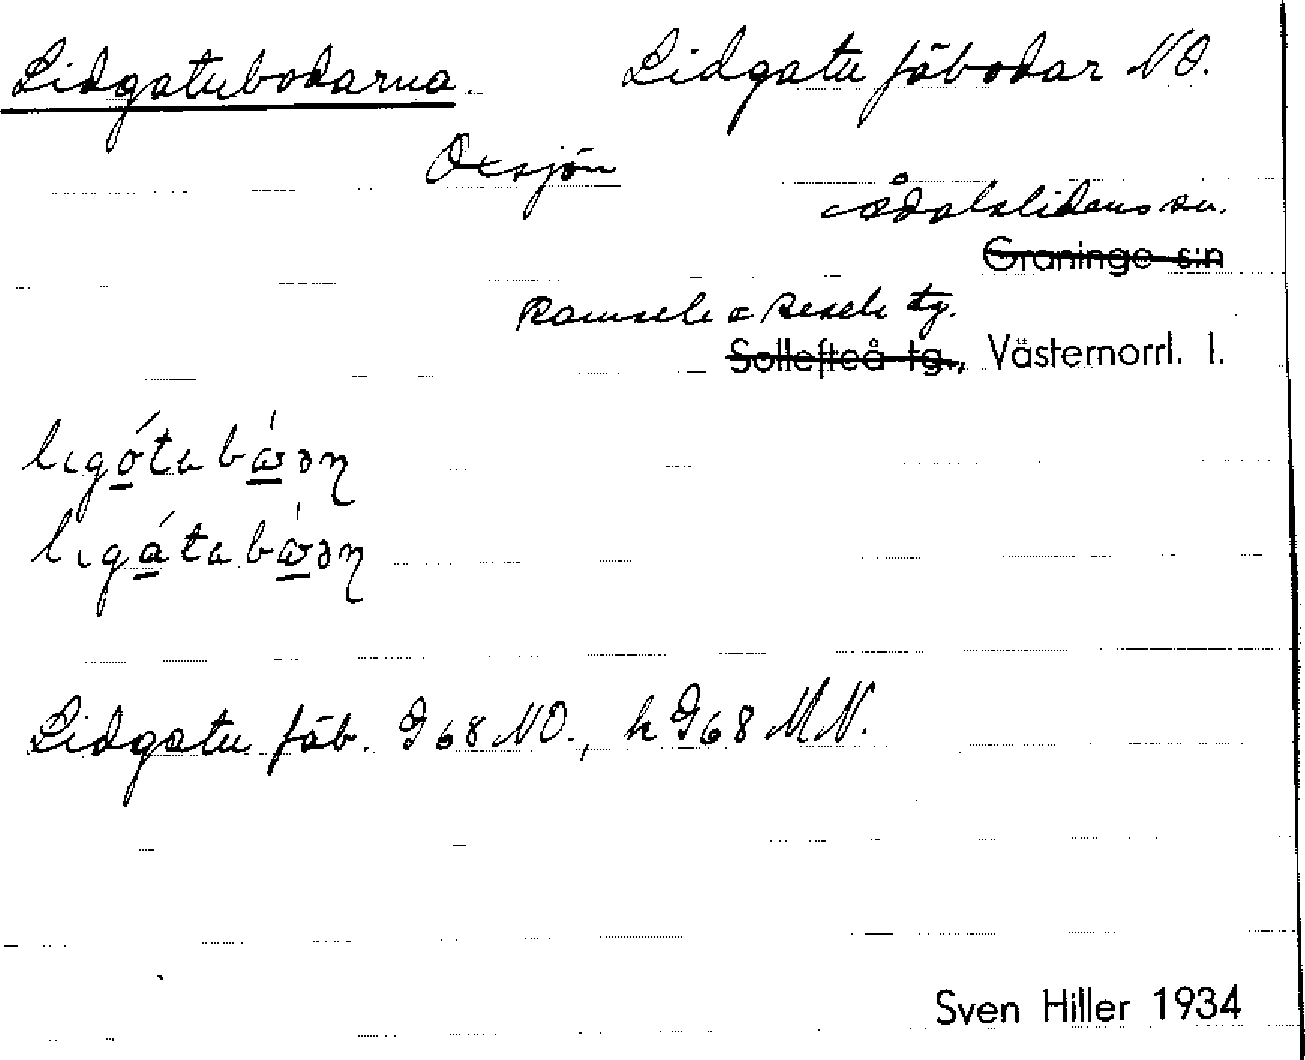 Lidgatubodarna. Lidgatu fäbodar NO.
Oxsjön
Ådalslidens sn.
Graninge s:n
Ramsele o Resele tg.
Sollefteå tg., Västernorrl. l.
Lidgatu fäb. G68 NO., h G68 MN.
Sven Hiller 1934